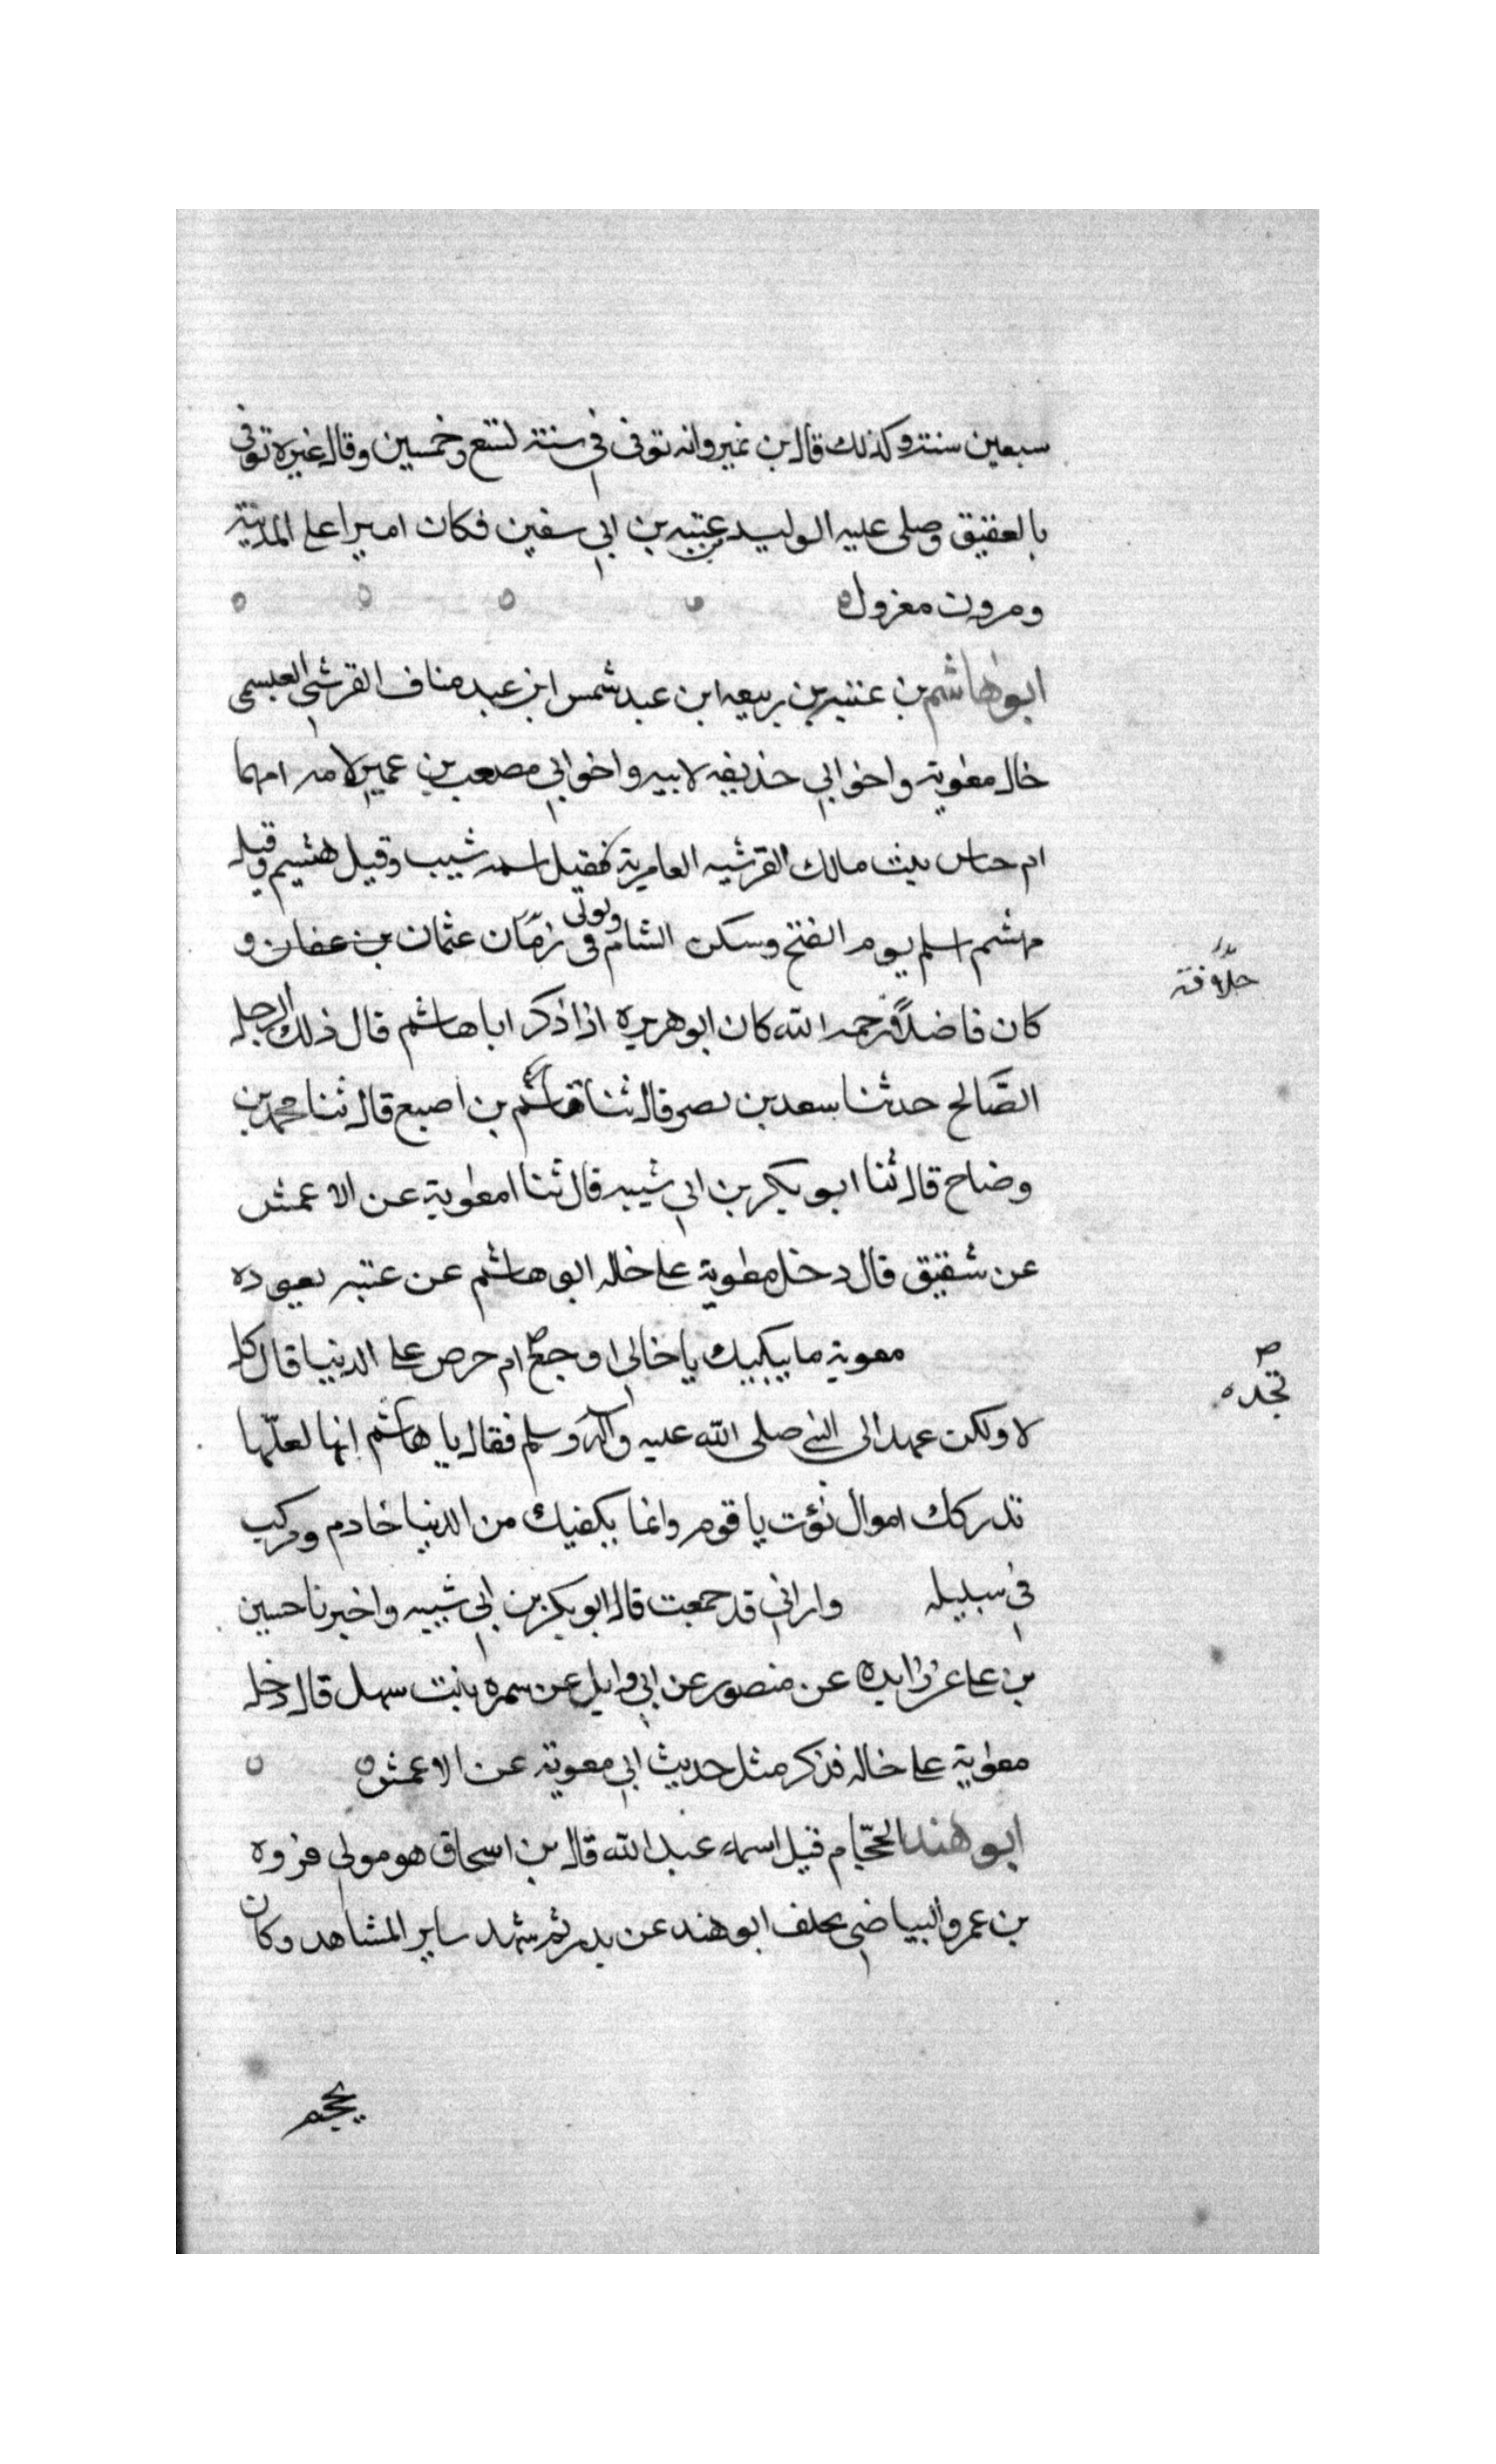 سبعين سنة وكذلك قال بن نمير وانه توفى في سنة لتسع وخمسين وقال غيره توفى
بالعقيق وصلى عليه الوليد بن عتبه بن ابي سفين فكان اميرا على المدينة
ومرون معزول
ابو هاشم بن عتبه بن ربيعه ابن عبد شمس ابن عبد مناف القرشي العبسمى
خال معوية واخو ابي حذيفه لابيه واخو ابي مصعب بن عمير لامه امهما
ام حناس بنت مالك القرشيه العامرية فقيل اسمه شيب وقيل هشيم وقيل
مهشم اسلم يوم الفتح وسكن الشام وتوفى فى زمان عثمان بن عفان و
خلافة
كان فاضلا رحمه الله كان ابو هريره اذا ذكر ابا هاشم قال ذلك الرجل
الصالح حدثنا سعد بن نصر قال ثنا قاسم بن اصبع قال ثنا محمد بن
وضاح قال ثنا ابو بكر بن ابي شيبه قال ثنا امعوية عن الاعمش
عن شقيق قال دخل معوية على خاله ابو هاشم عن عتبه يعوده
معوية ما يبكيك يا خالى اوجع ام حرص على الدنيا قال كل
تجده
لا ولكن عهد الى النبي صلى الله عليه واله وسلم فقال يا هاشم انها لعلها
تدركك اموال تؤت يا قوم وانما يكفيك من الدنيا خادم ومركب
في سبيله وارانى قد جمعت قال ابو بكر بن ابي شيبه واخبرنا حسين
بن على عن زايده عن منصور عن ابي وايل عن سمره بنت سهل قال دخل
معوية على خاله فذكر مثل حديث ابي معوية عن الاعمش
ابو هند الحجام قيل اسمه عبد الله قال بن اسحاق هو مولى فروه
بن عمرو البياضي تخلف ابو هند عن بدر ثم شهد ساير المشاهد وكان
يحجم